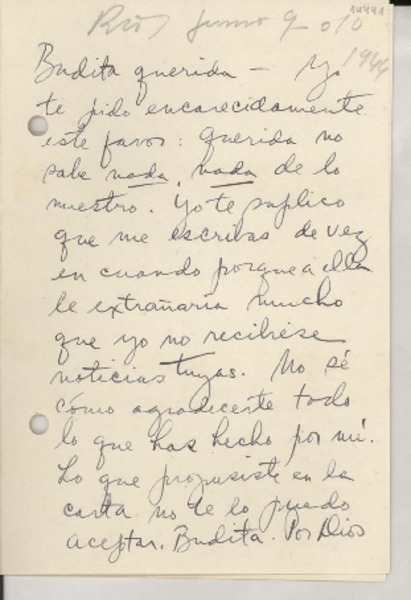 14441
Río, Junio 9 - 010
1944
Budita querida – Yo
te pido encarecidamente
este favor: Querida no
sabe nada, nada de lo
nuestro. Yo te suplico
que me escribas de vez
en cuando porque a ella
le extrañaría mucho
que yo no recibiese
noticias tuyas. No sé
cómo agradecerte todo
lo que has hecho por mí.
Lo que propusiste en la
carta no te lo puedo
aceptar. Budita. Por Dios